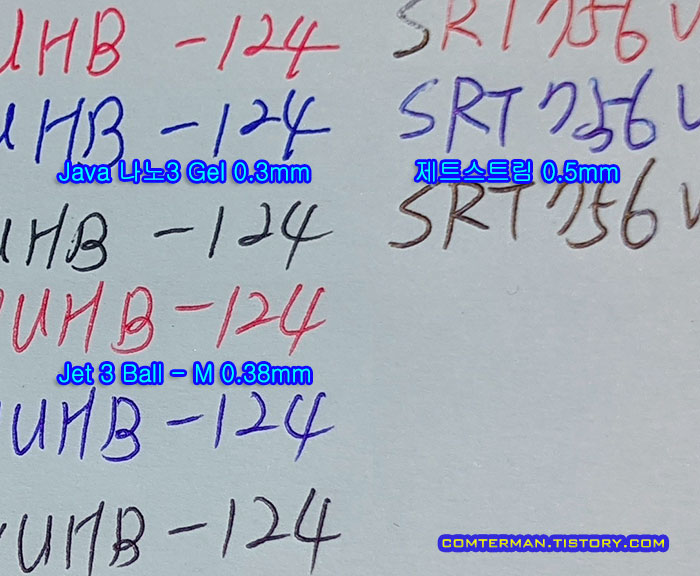 UHB -124
UHB -124
Java 나노3 Gel 0.3mm
UHB -124
UHB -124
Jet 3 Ball - M 0.38mm
UHB -124
UHB -124
SRT 756
SRT 756
제트스트림 0.5mm
SRT 756
COMTERMAN.TISTORY.COM